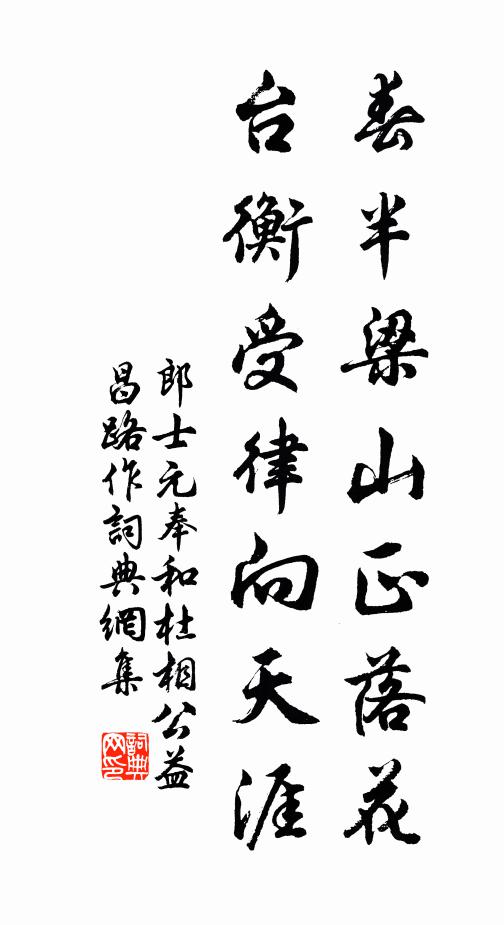 春半梁山正落花
台衡受律向天涯
郎士元奉和杜相公益
昌路作詞典網集
詞典網印